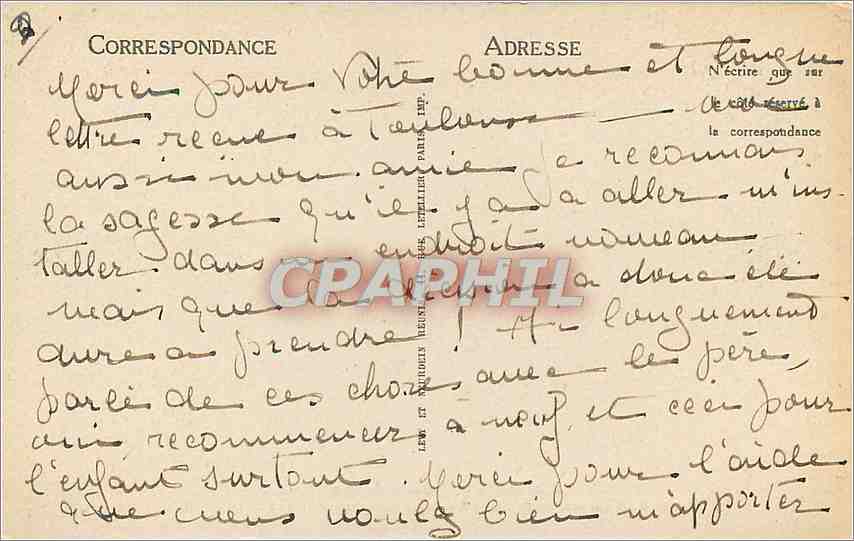 CORRESPONDANCE
ADRESSE
N'écrire que sur
le côté réservé à
la correspondance
Merci pour Votre bonne et longue
lettre recue à Toulouse —
aussi mon amie je reconnais
la sagesse qu'il y a à aller m'ins-
taller dans un endroit nouveau
mais que la décision a donc été
dure a prendre !
longuement
parlé de ces choses avec le père,
oui recommencer à neuf, et ceci pour
l'enfant surtout. Merci pour l'aide
que vous voulez bien m'apporter
LEVY ET NEURDEIN REUNIS, RUE LETELLIER, PARIS, IMP.
CPAPHIL